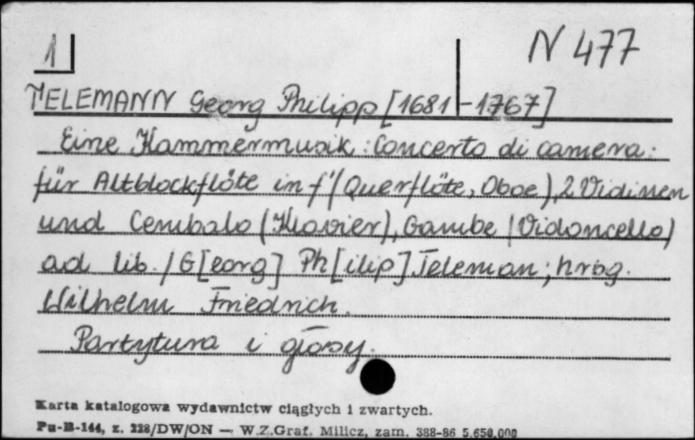 1
N 477
TELEMANN Georg Philipp [1681-1767]
Eine Kammermusik : Concerto di camera :
für Altblockflöte in f'/(Querflöte, Oboe), 2 Violinen
und Cembalo (Klavier), Gambe (Violoncello)
ad lib. / G[eorg] Ph[ilip] Teleman ; hrsg.
Wilhelm Friedrich.
Partytura i głosy.
Karta katalogowa wydawnictw ciągłych i zwartych.
Pu-B-144, z. 228/DW/ON — W.Z.Graf. Milicz, zam. 388-86 5.650.000